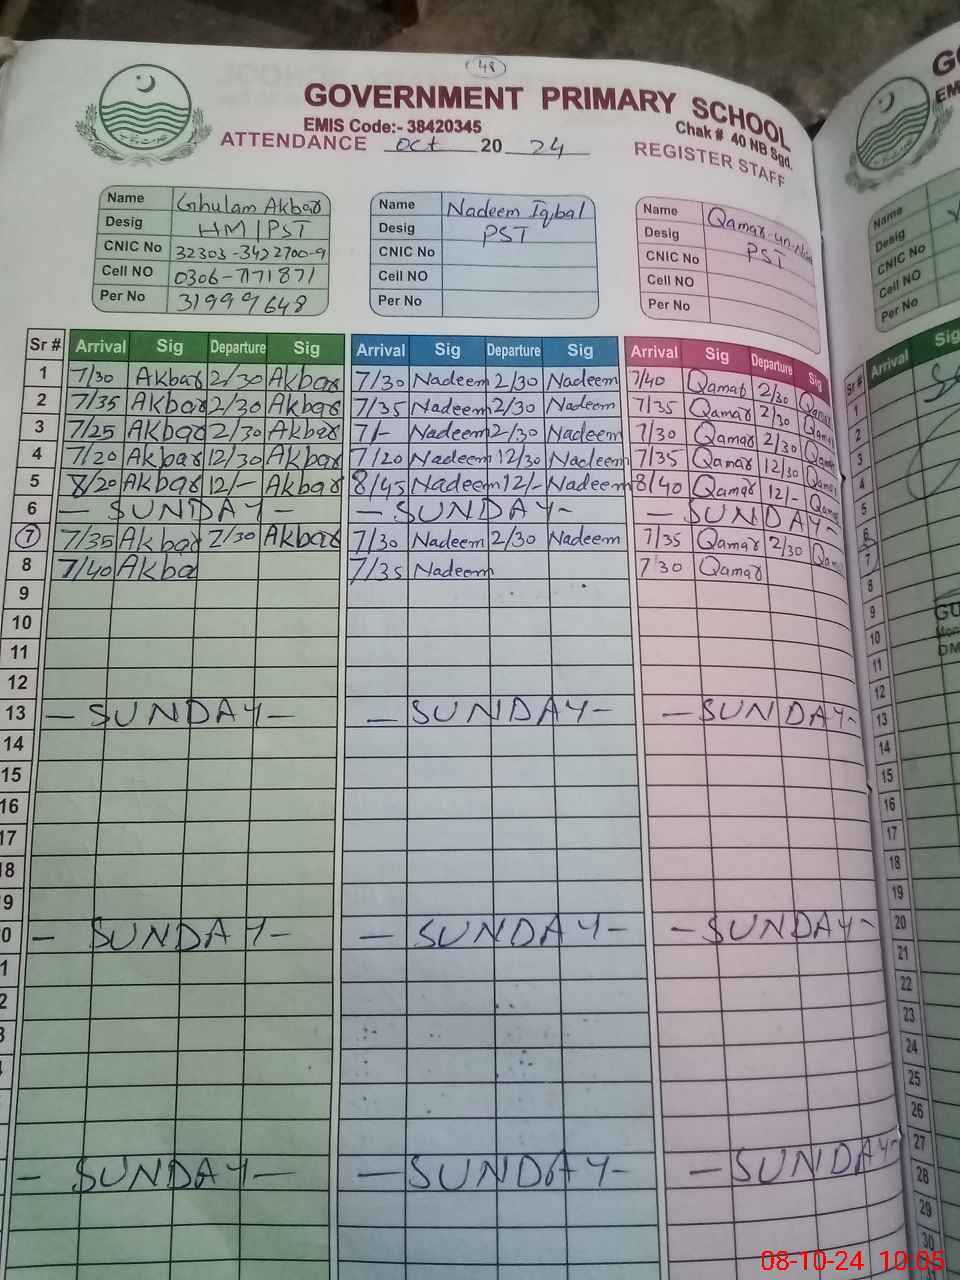 48
GOVERNMENT PRIMARY SCHOOL
EMIS Code:- 38420345
Chak # 40 NB Sgd.
ATTENDANCE Oct 20 24
REGISTER STAFF
Name Ghulam Akbar
Desig HM/PST
CNIC No 32303-3422700-9
Cell NO 0306-7171871
Per No 31999648
Name Nadeem Iqbal
Desig PST
CNIC No
Cell NO
Per No
Name Qamar-un-
Desig PST
CNIC No
Cell NO
Per No
Name
Desig
CNIC No
Cell NO
Per No
Sr # Arrival Sig Departure Sig Arrival Sig Departure Sig Arrival Sig Departure Sig
1 7/30 Akbar 2/30 Akbar 7/30 Nadeem 2/30 Nadeem 7/40 Qamar 2/30 Qamar
2 7/35 Akbar 2/30 Akbar 7/35 Nadeem 2/30 Nadeem 7/35 Qamar 2/30 Qamar
3 7/25 Akbar 2/30 Akbar 7/- Nadeem 2/30 Nadeem 7/30 Qamar 2/30 Qamar
4 7/20 Akbar 12/30 Akbar 7/20 Nadeem 12/30 Nadeem 7/35 Qamar 12/30 Qamar
5 8/20 Akbar 12/- Akbar 8/45 Nadeem 12/- Nadeem 8/40 Qamar 12/- Qamar
6 - SUNDAY - - SUNDAY - - SUNDAY -
7 7/35 Akbar 2/30 Akbar 7/30 Nadeem 2/30 Nadeem 7/35 Qamar 2/30 Qamar
8 7/40 Akba 7/35 Nadeem 7/30 Qamar
9
10
11
12
13 - SUNDAY - - SUNDAY - - SUNDAY -
14
15
16
17
18
9
0 - SUNDAY - - SUNDAY - - SUNDAY -
1
2
3
- SUNDAY - - SUNDAY - - SUNDAY -
Sr # Arrival Sig
1
2
3
4
5
6
7
8
9
10
11
12
13
14
15
16
17
18
19
20
21
22
23
24
25
26
27
28
29
30
08-10-24 10:05